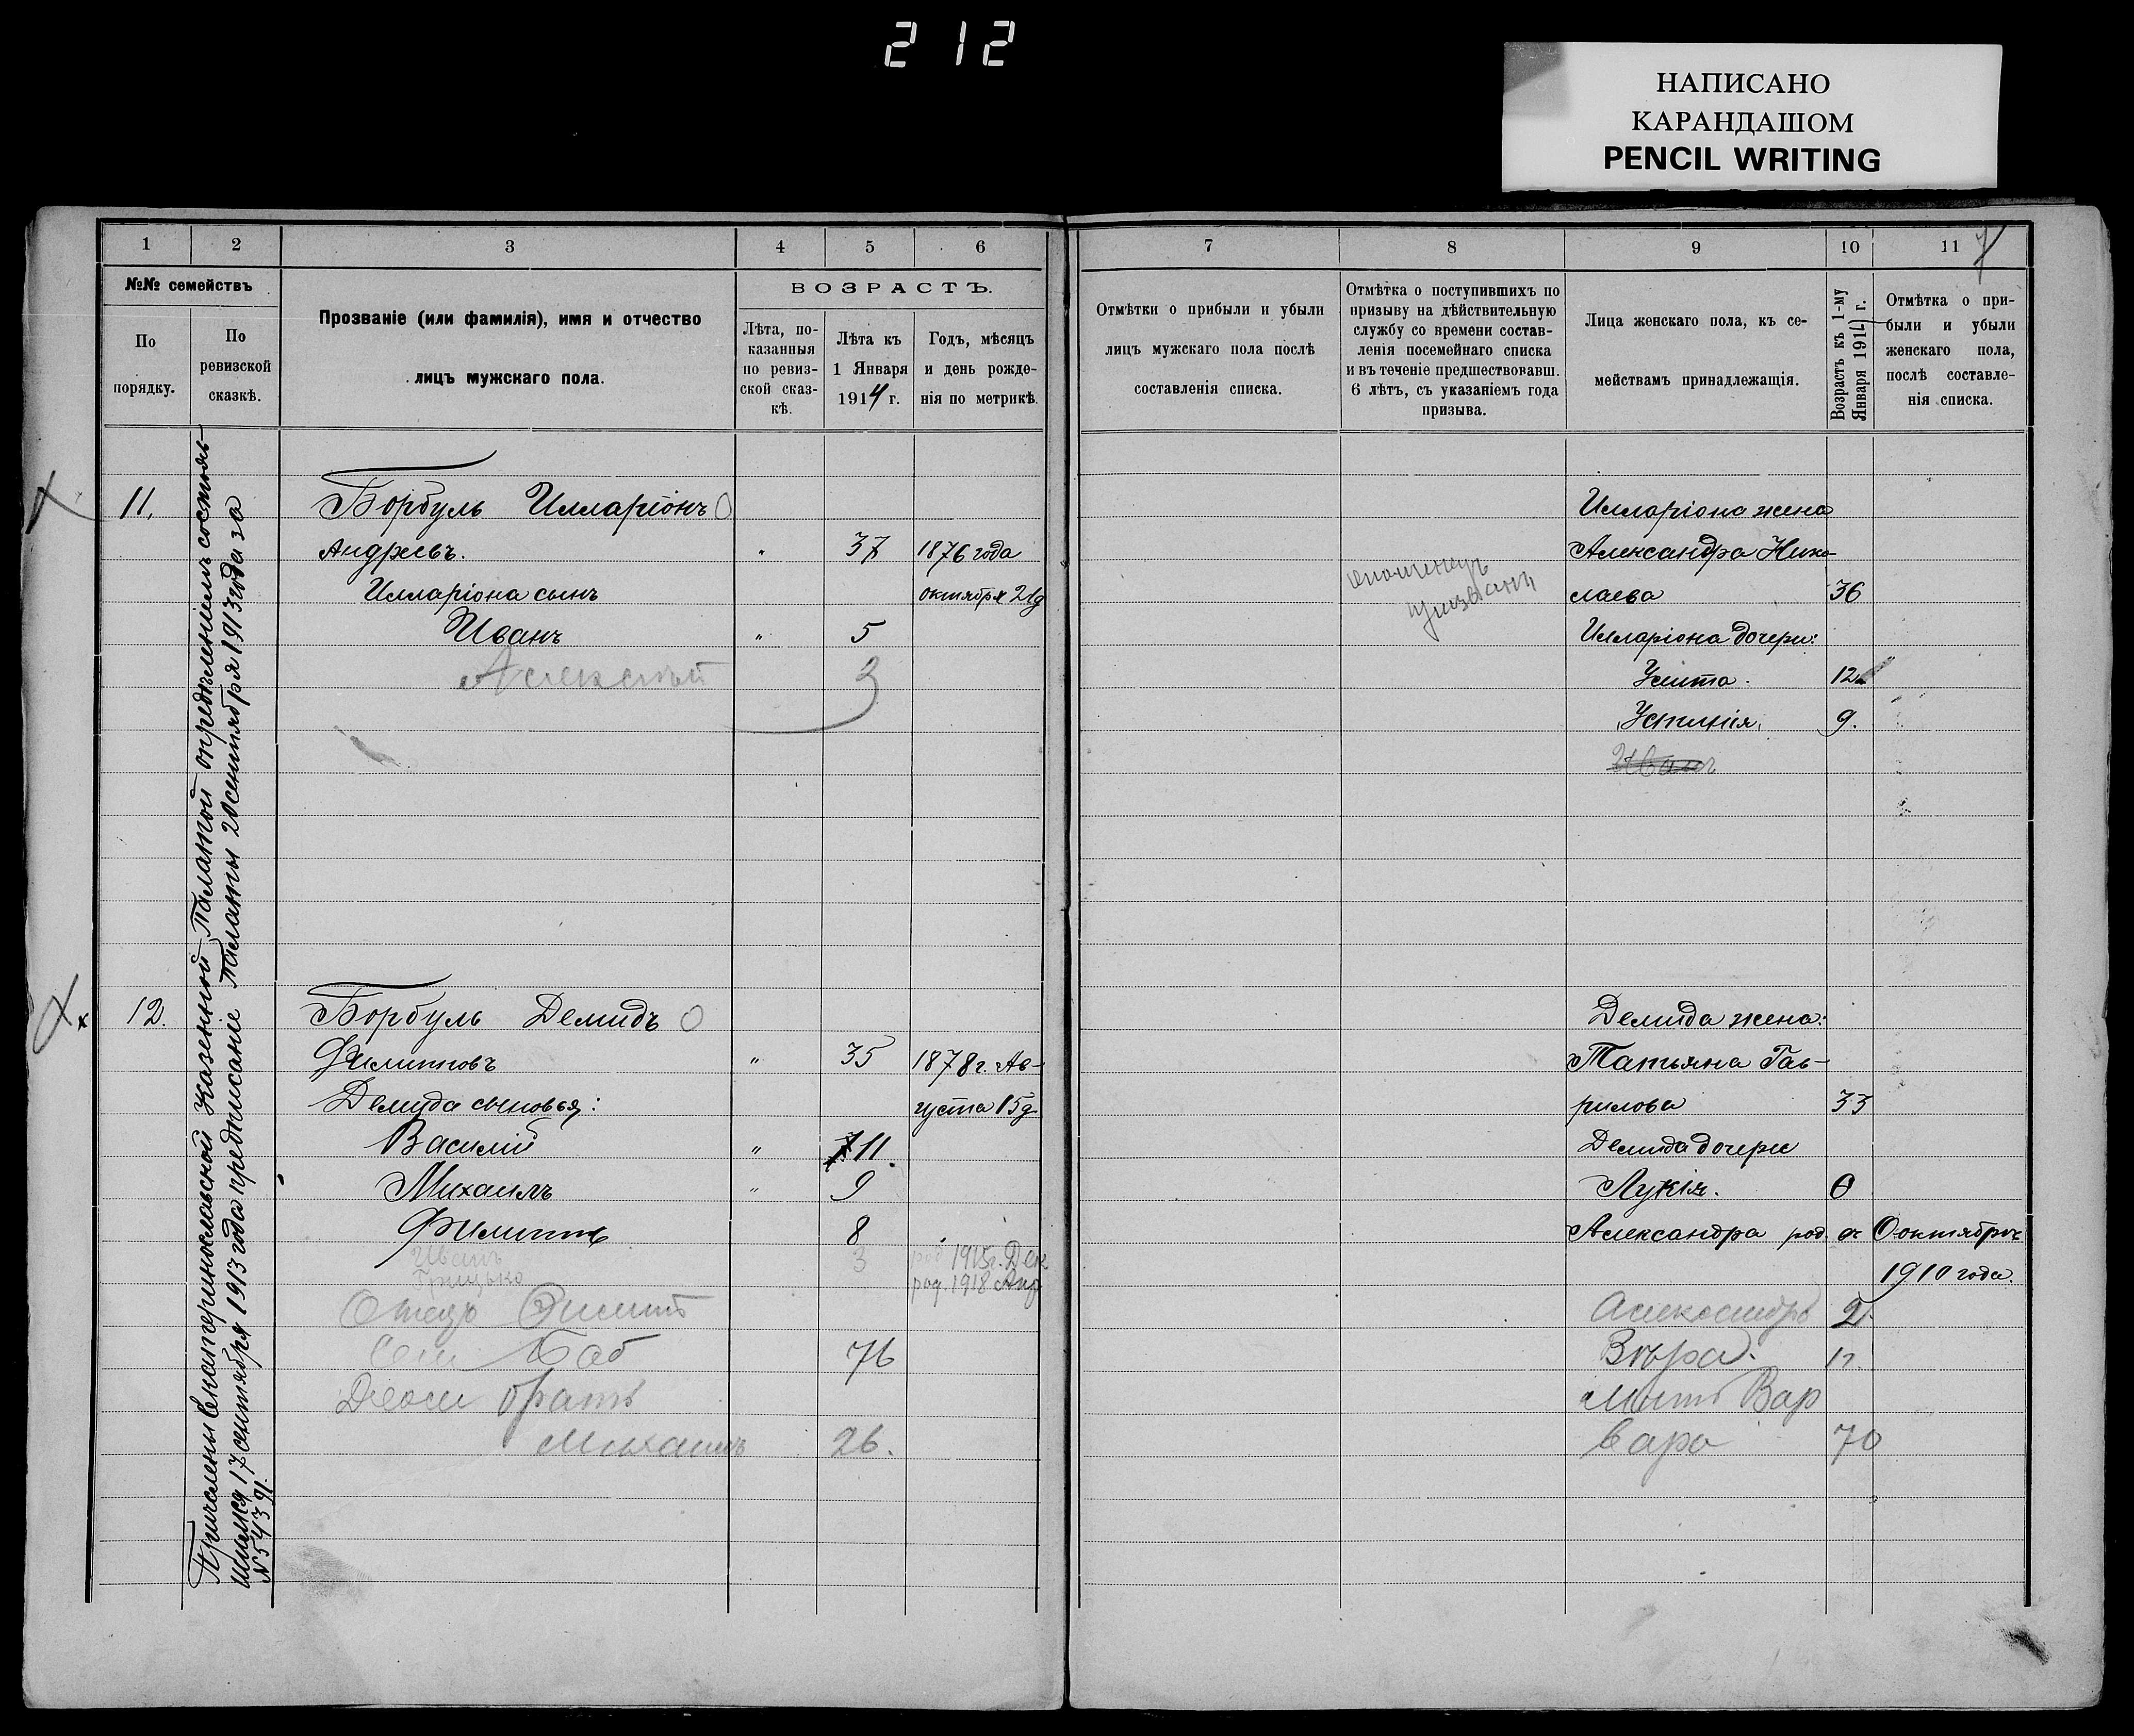 212
НАПИСАНО
КАРАНДАШОМ
PENCIL WRITING
1 2 3 4 5 6
№№ семействъ
По порядку.
По ревизской сказкѣ.
Прозваніе (или фамилія), имя и отчество
лицъ мужскаго пола.
ВОЗРАСТЪ.
Лѣта, по-
казанныя
по ревиз-
ской сказ-
кѣ.
Лѣта къ
1 Января
1914 г.
Годъ, мѣсяцъ
и день рожде-
нія по метрикѣ.
Причислены Екатеринославской Казенной Палатой опредѣленіемъ состояв-
шимся 17 сентября 1913 года предписаніе Палаты 20 сентября 1913 года за
№ 54391.
11. Борбуль Илларіонъ
Андреевъ. " 37 1876 года
Илларіона сынъ октября 21 д
Иванъ " 5
Алексѣй 3
12. Борбуль Демидъ
Филипповъ " 35 1878 г. Ав-
Демида сыновья: густа 15 д
Василій " 11.
Михаилъ " 9
Филиппъ 8
Иванъ 3 род. 1915 г. Дек
Грицько род. 1918 Апр
Отецъ Филиппъ
76
братъ
Михаилъ 26.
7 8 9 10 11
Отмѣтки о прибыли и убыли
лицъ мужскаго пола послѣ
составленія списка.
Отмѣтка о поступившихъ по
призыву на дѣйствительную
службу со времени состав-
ленія посемейнаго списка
и въ теченіе предшествовавш.
6 лѣтъ, съ указаніемъ года
призыва.
Лица женскаго пола, къ се-
мействамъ принадлежащія.
Возрастъ къ 1-му
Января 1914 г.
Отмѣтка о при-
были и убыли
женскаго пола,
послѣ составле-
нія списка.
Илларіона жена
Александра Нико-
лаева 36
ополченецъ
призванъ
Илларіона дочери:
Улита. 12
Устинія. 9.
Иванъ
Демида жена:
Татьяна Гав-
рилова 33
Демида дочери
Лукія. 6
Александра род. 0 октября
1910 года.
Александра 2.
Вѣра.
мать Вар
вара 70